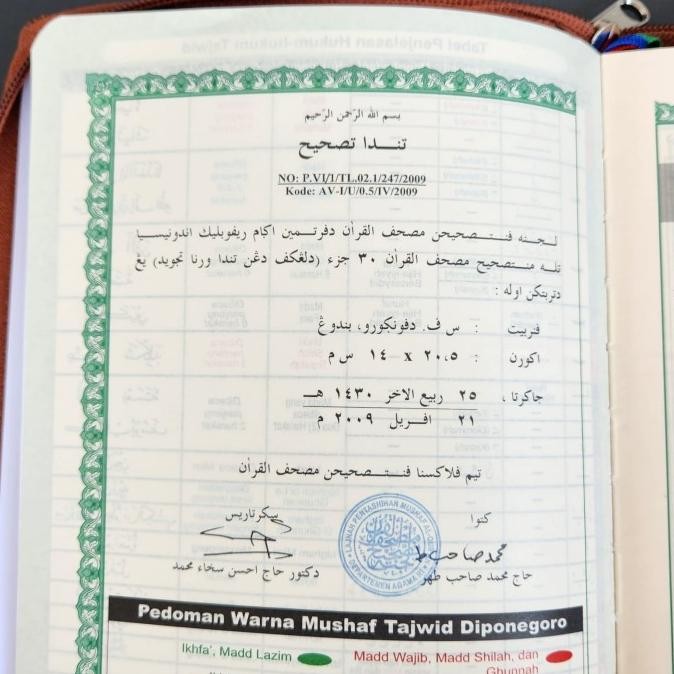 بسم الله الرّحمن الرّحيم
تندا تصحيح
NO: P.VI/1/TL.02.1/247/2009
Kode: AV-I/U/0.5/IV/2009
لجنه فنتصحيحن مصحف القرأن دفرتمين اكام ريفوبليك اندونيسيا
تله منتصحيح مصحف القرأن ٣٠ جزء (دلڠكف دڠن تندا ورنا تجويد) يڠ
دتربتكن اوله :
فنربيت : س ف. دفونكورو، بندوڠ
اكورن : ٢٠،٥ x ١٤ س م
جاكرتا ، ٢٥ ربيع الاخر ١٤٣٠ هـ
٢١ افريل ٢٠٠٩ م
تيم فلاكسنا فنتصحيحن مصحف القرأن
كتوا
سكرتاريس
محمد صاحب ط
حاج محمد صاحب طهر
دكتور حاج احسن سخاء محمد
LAJNAH PENTASHIHAN MUSHAF AL-
DEPARTEMEN AGAMA RI
Pedoman Warna Mushaf Tajwid Diponegoro
Ikhfa', Madd Lazim
Madd Wajib, Madd Shilah, dan
Ghunnah